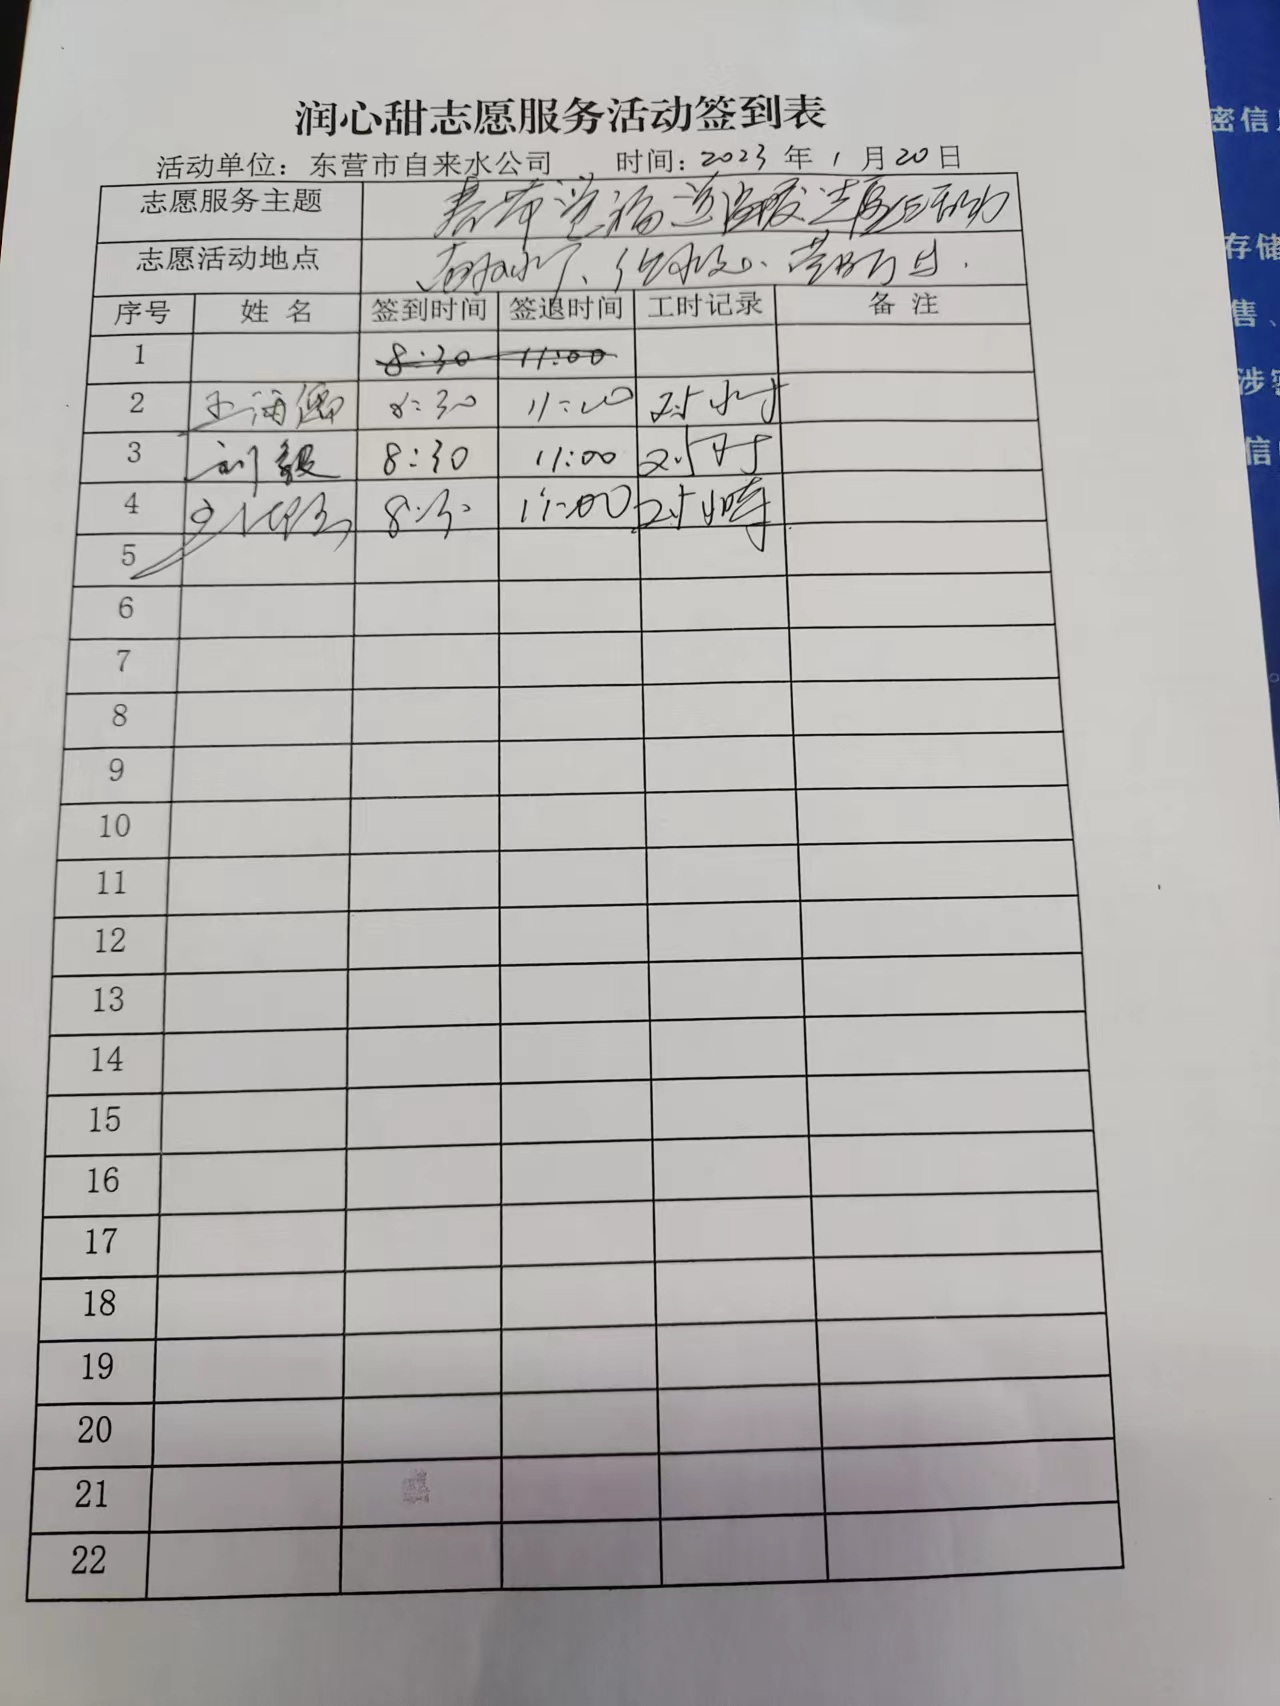 润心甜志愿服务活动签到表
活动单位：东营市自来水公司 时间：2023 年 1 月 20 日
志愿服务主题 送温暖志愿活动
志愿活动地点
序号 姓名 签到时间 签退时间 工时记录 备注
1 8:30 11:00
2 王海 8:30 11:00 2.5小时
3 刘毅 8:30 11:00 2.5时
4 8:30 11:00 2.5小时
5
6
7
8
9
10
11
12
13
14
15
16
17
18
19
20
21
22
密信息
存储
售、
涉密
信